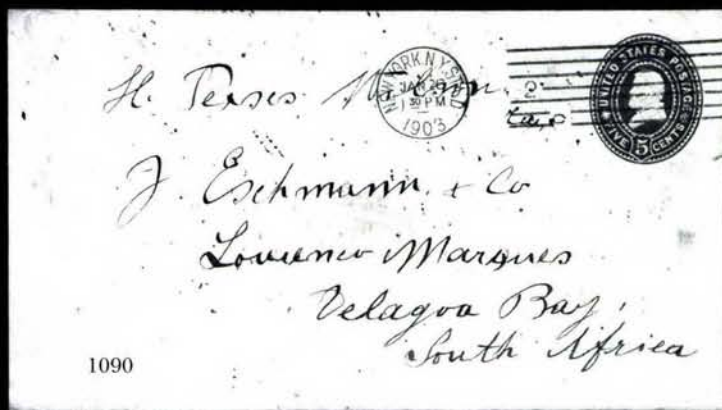 H. Perses
NEW YORK, N.Y. STA. D
JAN 20
1 30 PM
1903
UNITED STATES POSTAGE
FIVE 5 CENTS
J. Eschmann & Co
Lourenco Marques
Delagoa Bay,
South Africa
1090